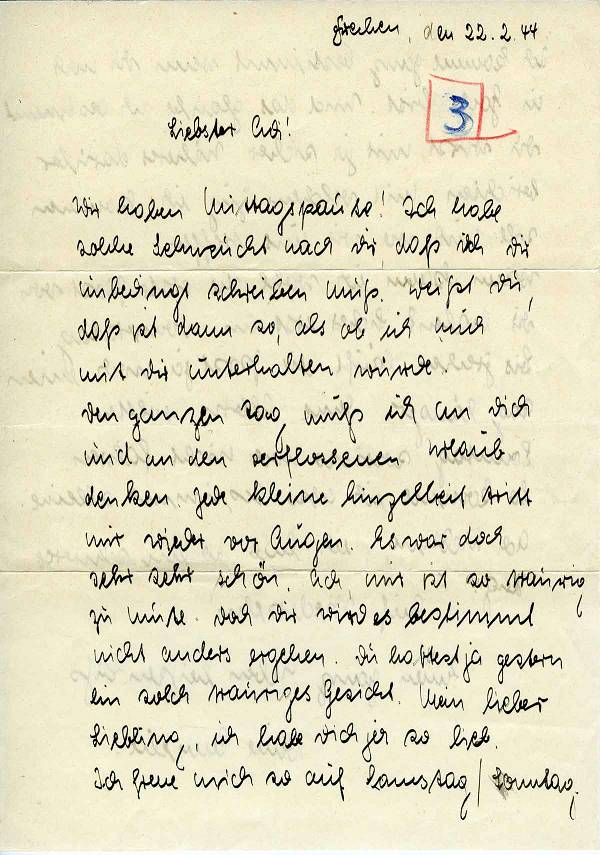 Frechen, den 22.2.44
3
Liebster Adi!
Wir haben Mittagspause! Ich habe
solche Sehnsucht nach dir, daß ich dir
unbedingt schreiben muß. Weißt du,
daß ist dann so, als ob ich mich
mit dir unterhalten würde.
Den ganzen Tag muß ich an dich
und an den verflossenen Urlaub
denken. Jede kleine Einzelheit tritt
mir wieder vor Augen. Es war doch
sehr sehr schön. Ach, mir ist so traurig
zu mute. Doch dir wird es bestimmt
nicht anders ergehen. Du hattest ja gestern
ein solch trauriges Gesicht. Mein lieber
Liebling, ich habe dich ja so lieb.
Ich freue mich so auf Samstag/Sonntag.